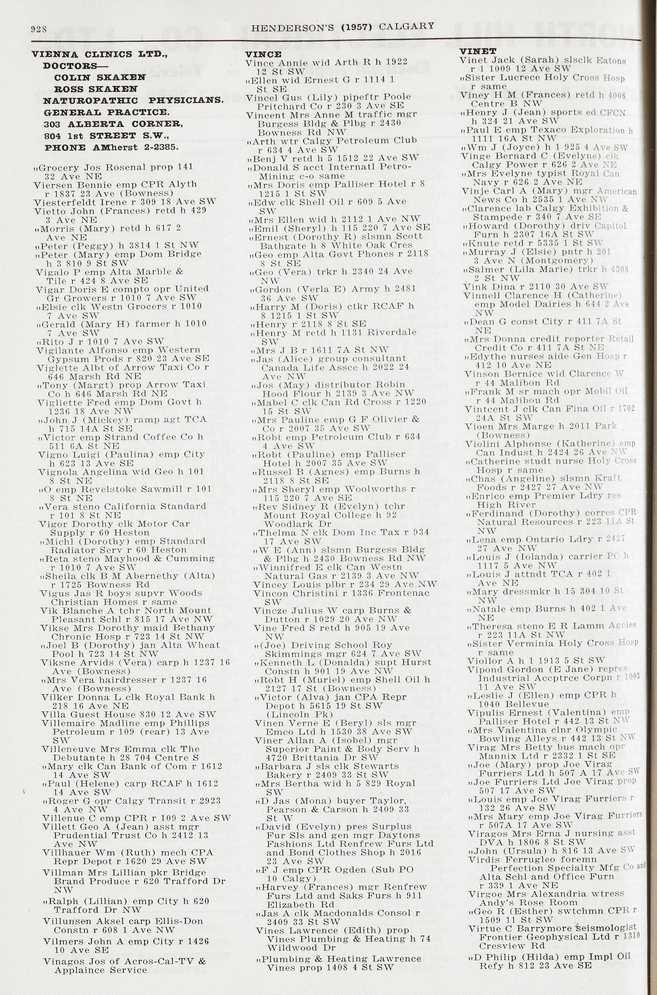 928
HENDERSON'S (1957) CALGARY
VIENNA CLINICS LTD.,
DOCTORS—
COLIN SKAKEN
ROSS SKAKEN
NATUROPATHIC PHYSICIANS.
GENERAL PRACTICE.
303 ALBERTA CORNER,
804 1st STREET S.W.,
PHONE AMherst 2-2385.
„Grocery Jos Rosenal prop 141
32 Ave NE
Viersen Bennie emp CPR Alyth
r 1837 23 Ave (Bowness)
Viesterfeldt Irene r 309 18 Ave SW
Vietto John (Frances) retd h 429
3 Ave NE
„Morris (Mary) retd h 617 2
Ave NE
„Peter (Peggy) h 3814 1 St NW
„Peter (Mary) emp Dom Bridge
h 3 810 9 St SW
Vigalo P emp Alta Marble &
Tile r 424 8 Ave SE
Vigar Doris E compto opr United
Gr Growers r 1010 7 Ave SW
„Elsie clk Westn Grocers r 1010
7 Ave SW
„Gerald (Mary H) farmer h 1010
7 Ave SW
„Rito J r 1010 7 Ave SW
Vigilante Alfonso emp Western
Gypsum Prods r 820 23 Ave SE
Viglette Albt of Arrow Taxi Co r
646 Marsh Rd NE
„Tony (Margt) prop Arrow Taxi
Co h 646 Marsh Rd NE
Vigliette Fred emp Dom Govt h
1236 18 Ave NW
„John J (Mickey) ramp agt TCA
h 715 14A St SE
„Victor emp Strand Coffee Co h
511 6A St NE
Vigno Luigi (Paulina) emp City
h 623 13 Ave SE
Vignola Angelina wid Geo h 101
8 St NE
„O emp Revelstoke Sawmill r 101
8 St NE
„Vera steno California Standard
r 101 8 St NE
Vigor Dorothy clk Motor Car
Supply r 60 Heston
„Michl (Dorothy) emp Standard
Radiator Serv r 60 Heston
„Reta steno Mayhood & Cumming
r 1010 7 Ave SW
„Sheila clk B M Abernethy (Alta)
r 1725 Bowness Rd
Vigus Jas R boys supvr Woods
Christian Homes r same
Vik Blanche A tchr North Mount
Pleasant Schl r 815 17 Ave NW
Vikse Mrs Dorothy maid Bethany
Chronic Hosp r 723 14 St NW
„Joel B (Dorothy) jan Alta Wheat
Pool h 723 14 St NW
Viksne Arvids (Vera) carp h 1237 16
Ave (Bowness)
„Mrs Vera hairdresser r 1237 16
Ave (Bowness)
Vilker Donna L clk Royal Bank h
218 16 Ave NE
Villa Guest House 830 12 Ave SW
Villemaire Madline emp Phillips
Petroleum r 109 (rear) 13 Ave
SW
Villeneuve Mrs Emma clk The
Debutante h 28 704 Centre S
„Mary clk Can Bank of Com r 1612
14 Ave SW
„Paul (Helene) carp RCAF h 1612
14 Ave SW
„Roger G opr Calgy Transit r 2923
4 Ave NW
Villenue C emp CPR r 109 2 Ave SW
Villett Geo A (Jean) asst mgr
Prudential Trust Co h 2412 13
Ave NW
Villhauer Wm (Ruth) mech CPA
Repr Depot r 1620 29 Ave SW
Villman Mrs Lillian pkr Bridge
Brand Produce r 620 Trafford Dr
NW
„Ralph (Lillian) emp City h 620
Trafford Dr NW
Villunsen Aksel carp Ellis-Don
Constn r 608 1 Ave NW
Vilmers John A emp City r 1426
10 Ave SE
Vinagos Jos of Acros-Cal-TV &
Applaince Service
VINCE
Vince Annie wid Arth R h 1922
12 St SW
„Ellen wid Ernest G r 1114 1
St SE
Vincel Gus (Lily) pipeftr Poole
Pritchard Co r 230 3 Ave SE
Vincent Mrs Anne M traffic mgr
Burgess Bldg & Plbg r 2430
Bowness Rd NW
„Arth wtr Calgy Petroleum Club
r 634 4 Ave SW
„Benj V retd h 5 1512 22 Ave SW
„Donald S acct Internatl Petro-
Mining c-o same
„Mrs Doris emp Palliser Hotel r 8
1215 1 St SW
„Edw clk Shell Oil r 609 5 Ave
SW
„Mrs Ellen wid h 2112 1 Ave NW
„Emil (Sheryl) h 115 220 7 Ave SE
„Ernest (Dorothy R) slsmn Scott
Bathgate h 8 White Oak Cres
„Geo emp Alta Govt Phones r 2118
8 St SE
„Geo (Vera) trkr h 2340 24 Ave
NW
„Gordon (Verla E) Army h 2481
36 Ave SW
„Harry M (Doris) ctkr RCAF h
8 1215 1 St SW
„Henry r 2118 8 St SE
„Henry M retd h 1131 Riverdale
SW
„Mrs J B r 1611 7A St NW
„Jas (Alice) group consultant
Canada Life Assce h 2022 24
Ave NW
„Jos (May) distributor Robin
Hood Flour h 2139 3 Ave NW
„Mabel C clk Can Rd Cross r 1220
15 St SW
„Mrs Pauline emp G F Olivier &
Co r 2007 35 Ave SW
„Robt emp Petroleum Club r 634
4 Ave SW
„Robt (Pauline) emp Palliser
Hotel h 2007 35 Ave SW
„Russel B (Agnes) emp Burns h
2118 8 St SE
„Mrs Sheryl emp Woolworths r
115 220 7 Ave SE
„Rev Sidney R (Evelyn) tchr
Mount Royal College h 92
Woodlark Dr
„Thelma N clk Dom Inc Tax r 934
17 Ave SW
„W E (Ann) slsmn Burgess Bldg
& Plbg h 2430 Bowness Rd NW
„Winnifred E clk Can Westn
Natural Gas r 2139 3 Ave NW
Vincey Louis plbr r 234 29 Ave NW
Vincon Christini r 1336 Frontenac
SW
Vincze Julius W carp Burns &
Dutton r 1029 20 Ave NW
Vine Fred S retd h 905 19 Ave
NW
„(Joe) Driving School Roy
Skimmings mgr 624 7 Ave SW
„Kenneth L (Donalda) supt Hurst
Constn h 901 19 Ave NW
„Robt H (Muriel) emp Shell Oil h
2127 17 St (Bowness)
„Victor (Alva) jan CPA Repr
Depot h 5615 19 St SW
(Lincoln Pk)
Vinen Verne E (Beryl) sls mgr
Emco Ltd h 1530 38 Ave SW
Viner Allan A (Isobel) mgr
Superior Paint & Body Serv h
4729 Brittania Dr SW
„Barbara J sls clk Stewarts
Bakery r 2409 33 St SW
„Mrs Bertha wid h 5 829 Royal
SW
„D Jas (Mona) buyer Taylor,
Pearson & Carson h 2409 33
St W
„David (Evelyn) pres Surplus
Fur Sls and gen mgr Daytons
Fashions Ltd Renfrew Furs Ltd
and Bond Clothes Shop h 2016
23 Ave SW
„F J emp CPR Ogden (Sub PO
10 Calgy)
„Harvey (Frances) mgr Renfrew
Furs Ltd and Saks Furs h 911
Elizabeth Rd
„Jas A clk Macdonalds Consol r
2409 33 St SW
Vines Lawrence (Edith) prop
Vines Plumbing & Heating h 74
Wildwood Dr
„Plumbing & Heating Lawrence
Vines prop 1408 4 St SW
VINET
Vinet Jack (Sarah) slsclk Eatons
r 1 1009 12 Ave SW
„Sister Lucrece Holy Cross Hosp
r same
Viney H M (Frances) retd h 4008
Centre B NW
„Henry J (Jean) sports ed CFCN
h 324 21 Ave SW
„Paul E emp Texaco Exploration h
1111 16A St NW
„Wm J (Joyce) h 1 925 4 Ave SW
Vinge Bernard C (Evelyne) clk
Calgy Power r 626 2 Ave NE
„Mrs Evelyne typist Royal Can
Navy r 626 2 Ave NE
Vinje Carl A (Mary) mgr American
News Co h 2535 1 Ave NW
„Clarence lab Calgy Exhibition &
Stampede r 340 7 Ave SE
„Howard (Dorothy) driv Capitol
Furn h 2307 16A St SW
„Knute retd r 5335 1 St SW
„Murray J (Elsie) pntr h 201
3 Ave N (Montgomery)
„Salmer (Lila Marie) trkr h 4308
2 St NW
Vink Dina r 2110 30 Ave SW
Vinnell Clarence H (Catherine)
emp Model Dairies h 644 2 Ave
NW
„Dean G const City r 411 7A St
NE
„Mrs Donna credit reporter Retail
Credit Co r 411 7A St NE
„Edythe nurses aide Gen Hosp r
412 10 Ave NE
Vinson Bernice wid Clarence W
r 44 Malibon Rd
„Frank M sr mach opr Mobil Oil
r 44 Malibou Rd
Vintcent J clk Can Fina Oil r 1702
24A St SW
Vioen Mrs Marge h 2011 Park
(Bowness)
Violini Alphonse (Katherine) emp
Can Indust h 2424 26 Ave NW
„Catherine studt nurse Holy Cross
Hosp r same
„Chas (Angeline) slsmn Kraft
Foods r 2427 27 Ave NW
„Enrico emp Premier Ldry res
High River
„Ferdinand (Dorothy) corres CPR
Natural Resources r 223 11A St
NW
„Lena emp Ontario Ldry r 2427
27 Ave NW
„Louis J (Iolanda) carrier PC h
1117 5 Ave NW
„Louis J attndt TCA r 402 1
Ave NE
„Mary dressmkr h 15 304 10 St
NW
„Natale emp Burns h 402 1 Ave
NE
„Theresa steno E R Lamm Agcies
r 223 11A St NW
„Sister Verminia Holy Cross Hosp
r same
Vioilor A h 1 1913 5 St SW
Vipond Gordon (E Jane) repres
Industrial Accptree Corpn r 1003
11 Ave SW
„Leslie J (Ellen) emp CPR h
1040 Bellevue
Vipulis Ernest (Valentina) emp
Palliser Hotel r 442 13 St NW
„Mrs Valentina clnr Olympic
Bowling Alleys r 442 13 St NW
Virag Mrs Betty bus mach opr
Mannix Ltd r 2332 1 St SE
„Joe (Mary) prop Joe Virag
Furriers Ltd h 507 A 17 Ave SW
„Joe Furriers Ltd Joe Virag prop
507 17 Ave SW
„Louis emp Joe Virag Furriers r
132 26 Ave SW
„Mrs Mary emp Joe Virag Furriers
r 507A 17 Ave SW
Viragos Mrs Erna J nursing asst
DVA h 1806 8 St SW
„John (Ursula) h 816 13 Ave SW
Virdis Ferrugleo foremn
Perfection Specialty Mfg Co and
Alta Schl and Office Furn
r 339 1 Ave NE
Virgoe Mrs Alexandria wtress
Andy's Rose Room
„Geo R (Esther) swtchmn CPR r
1509 11 St SW
Virtue C Barrymore Seismologist
Frontier Geophysical Ltd r 1310
Cresview Rd
„D Philip (Hilda) emp Impl Oil
Refy h 812 23 Ave SE